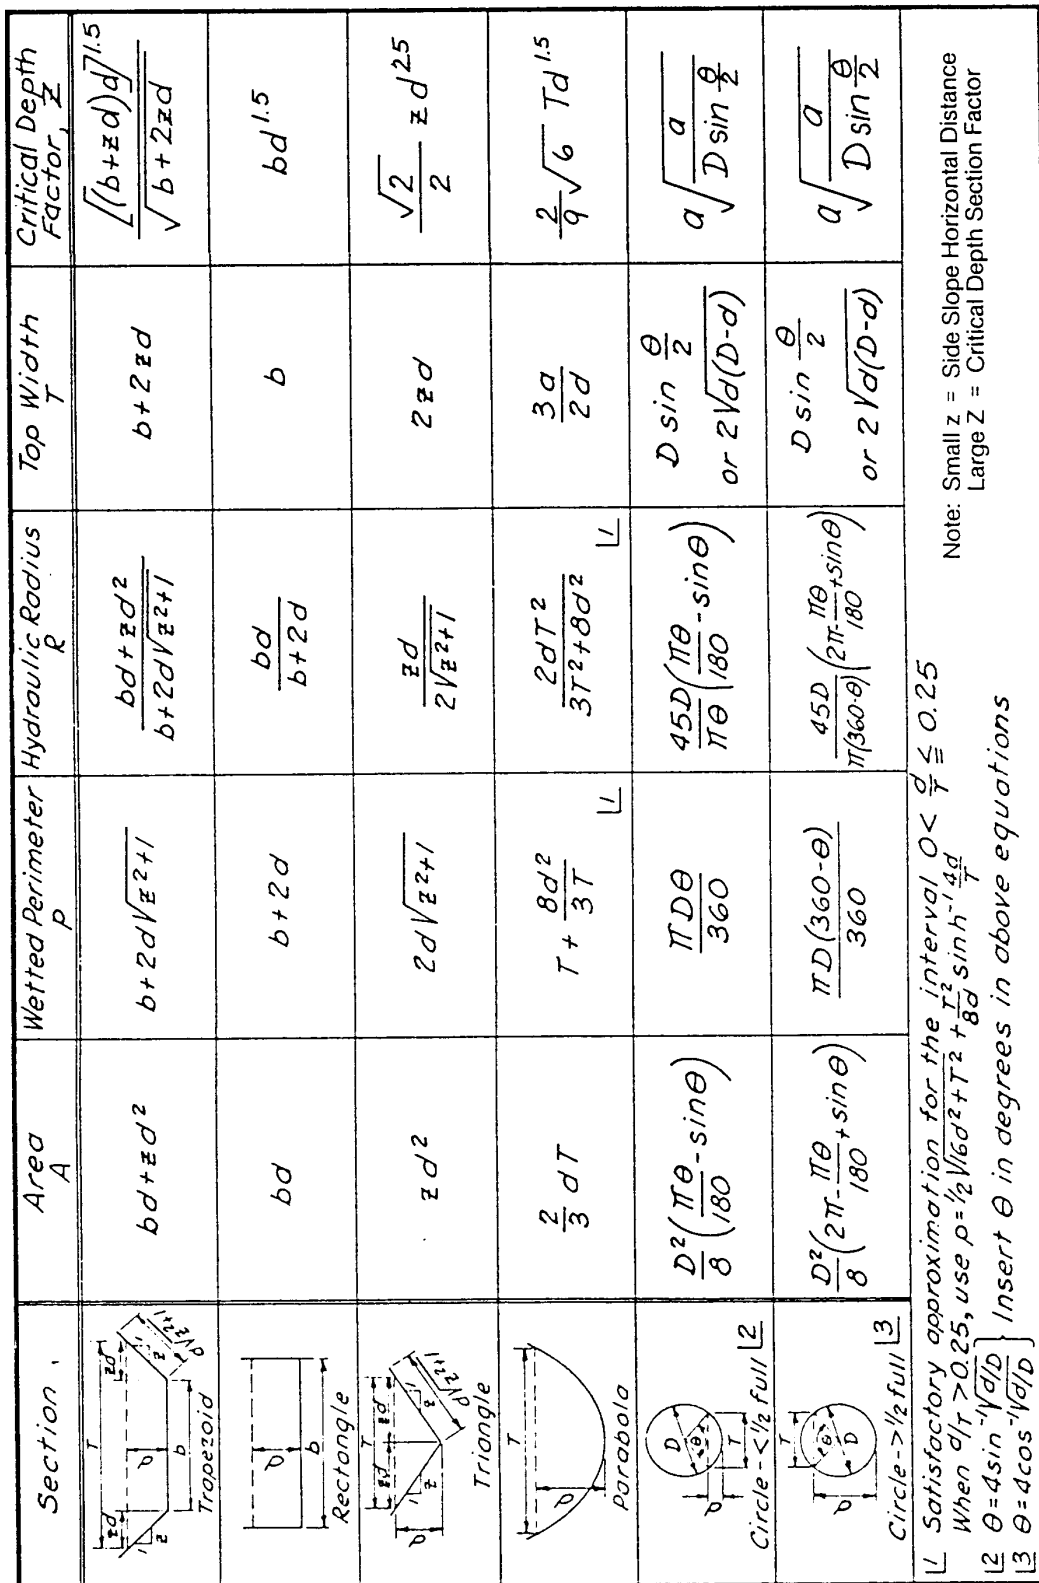 Section
Area
A
Wetted Perimeter
P
Hydraulic Radius
R
Top Width
T
Critical Depth
Factor, Z
T
zd
zd
d
1
z
1
z
b
d√z²+1
Trapezoid
bd+zd²
b+2d√z²+1
bd+zd² / b+2d√z²+1
b+2zd
[(b+zd)d]^1.5 / √b+2zd
d
b
Rectangle
bd
b+2d
bd / b+2d
b
bd^1.5
T
zd
zd
d
1
z
1
z
d√z²+1
Triangle
zd²
2d√z²+1
zd / 2√z²+1
2zd
√2 / 2 zd^2.5
T
d
Parabola
2/3 dT
T + 8d² / 3T ⌊1
2dT² / 3T²+8d² ⌊1
3a / 2d
2/9 √6 Td^1.5
D
θ
d
T
Circle-<1/2 full ⌊2
D²/8 (πθ/180 - sinθ)
πDθ / 360
45D/πθ (πθ/180 - sinθ)
D sin θ/2
or 2√d(D-d)
a√a / D sin θ/2
T
θ
D
d
Circle->1/2 full ⌊3
D²/8 (2π - πθ/180 + sinθ)
πD(360-θ) / 360
45D / π(360-θ) (2π - πθ/180 + sinθ)
D sin θ/2
or 2√d(D-d)
a√a / D sin θ/2
⌊1 Satisfactory approximation for the interval 0 < d/T ≦ 0.25
When d/T > 0.25, use p = 1/2√16d²+T² + T²/8d sinh⁻¹ 4d/T
⌊2 θ = 4sin⁻¹√d/D
⌊3 θ = 4cos⁻¹√d/D } Insert θ in degrees in above equations
Note: Small z = Side Slope Horizontal Distance
Large Z = Critical Depth Section Factor